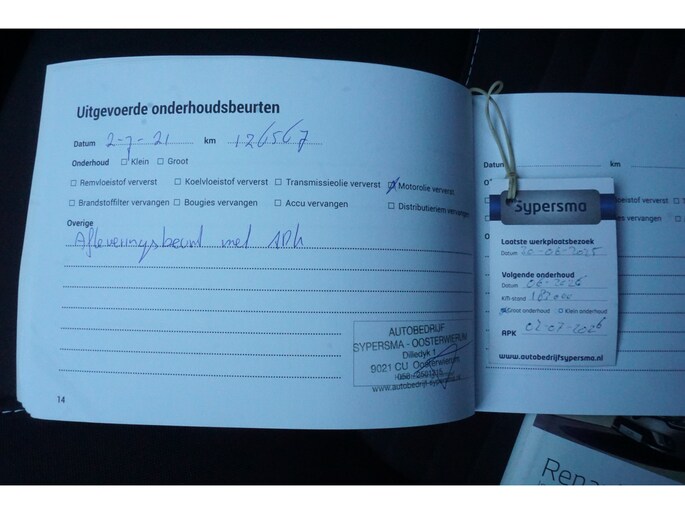 Uitgevoerde onderhoudsbeurten
Datum 2-7-21 km 126567
Onderhoud Klein Groot
Remvloeistof ververst Koelvloeistof ververst Transmissieolie ververst Motorolie ververst
Brandstoffilter vervangen Bougies vervangen Accu vervangen Distributieriem vervangen
Overige
Afleveringsbeurt met APK
AUTOBEDRIJF
SYPERSMA - OOSTERWIERUM
Dilledyk 1
9021 CU Oosterwierum
www.autobedrijf-sypersma.nl
14
Datum km
Sypersma
Laatste werkplaatsbezoek
Datum 20-06-2025
Volgende onderhoud
Datum 06-2026
Km-stand
Groot onderhoud Klein onderhoud
APK 02-07-2026
www.autobedrijfsypersma.nl
vloeistof ververst
vervangen
Rena